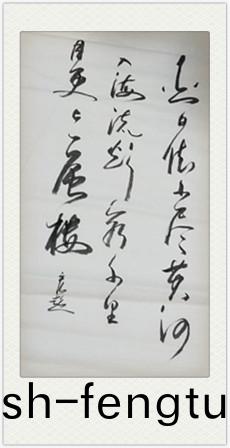 白日依山尽黄河
入海流欲穷千里
目更上一层楼
sh-fengtu